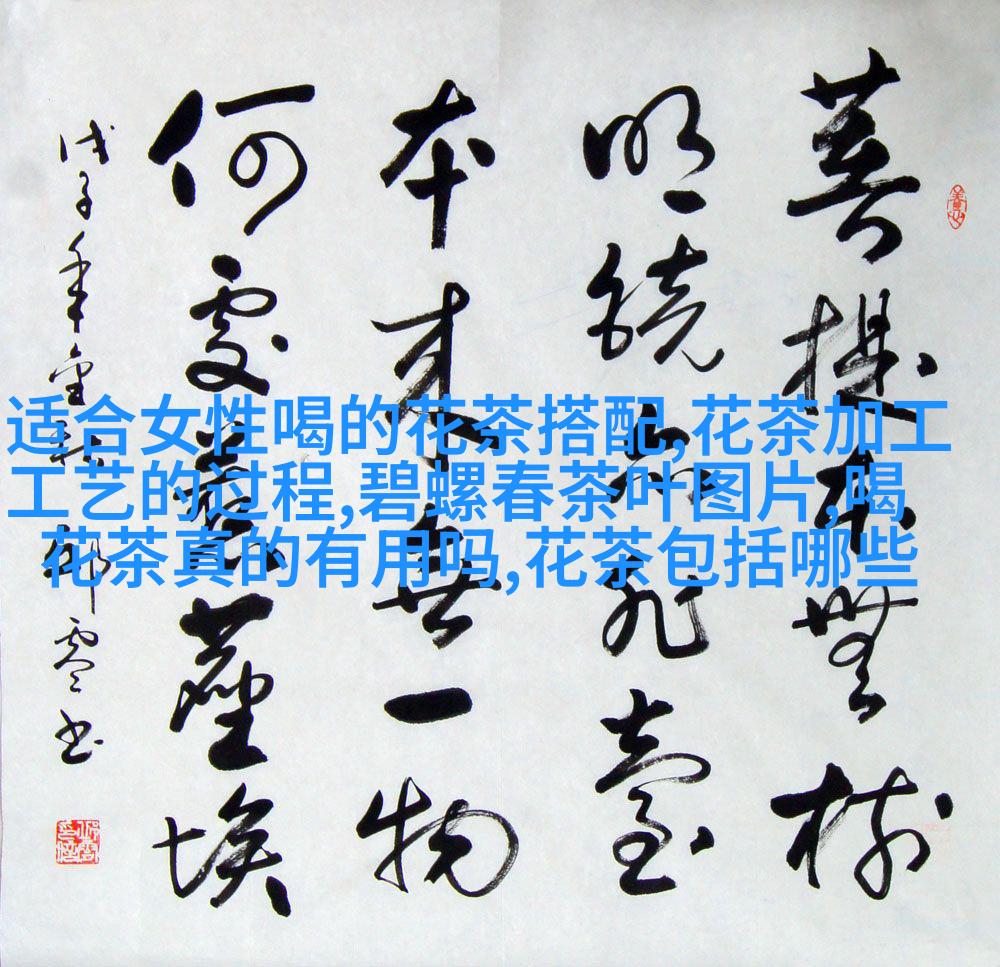 菩提本無樹
明鏡亦非臺
本來無一物
何處惹塵埃
戊子年
适合女性喝的花茶搭配,花茶加工
工艺的过程,碧螺春茶叶图片,喝
花茶真的有用吗,花茶包括哪些